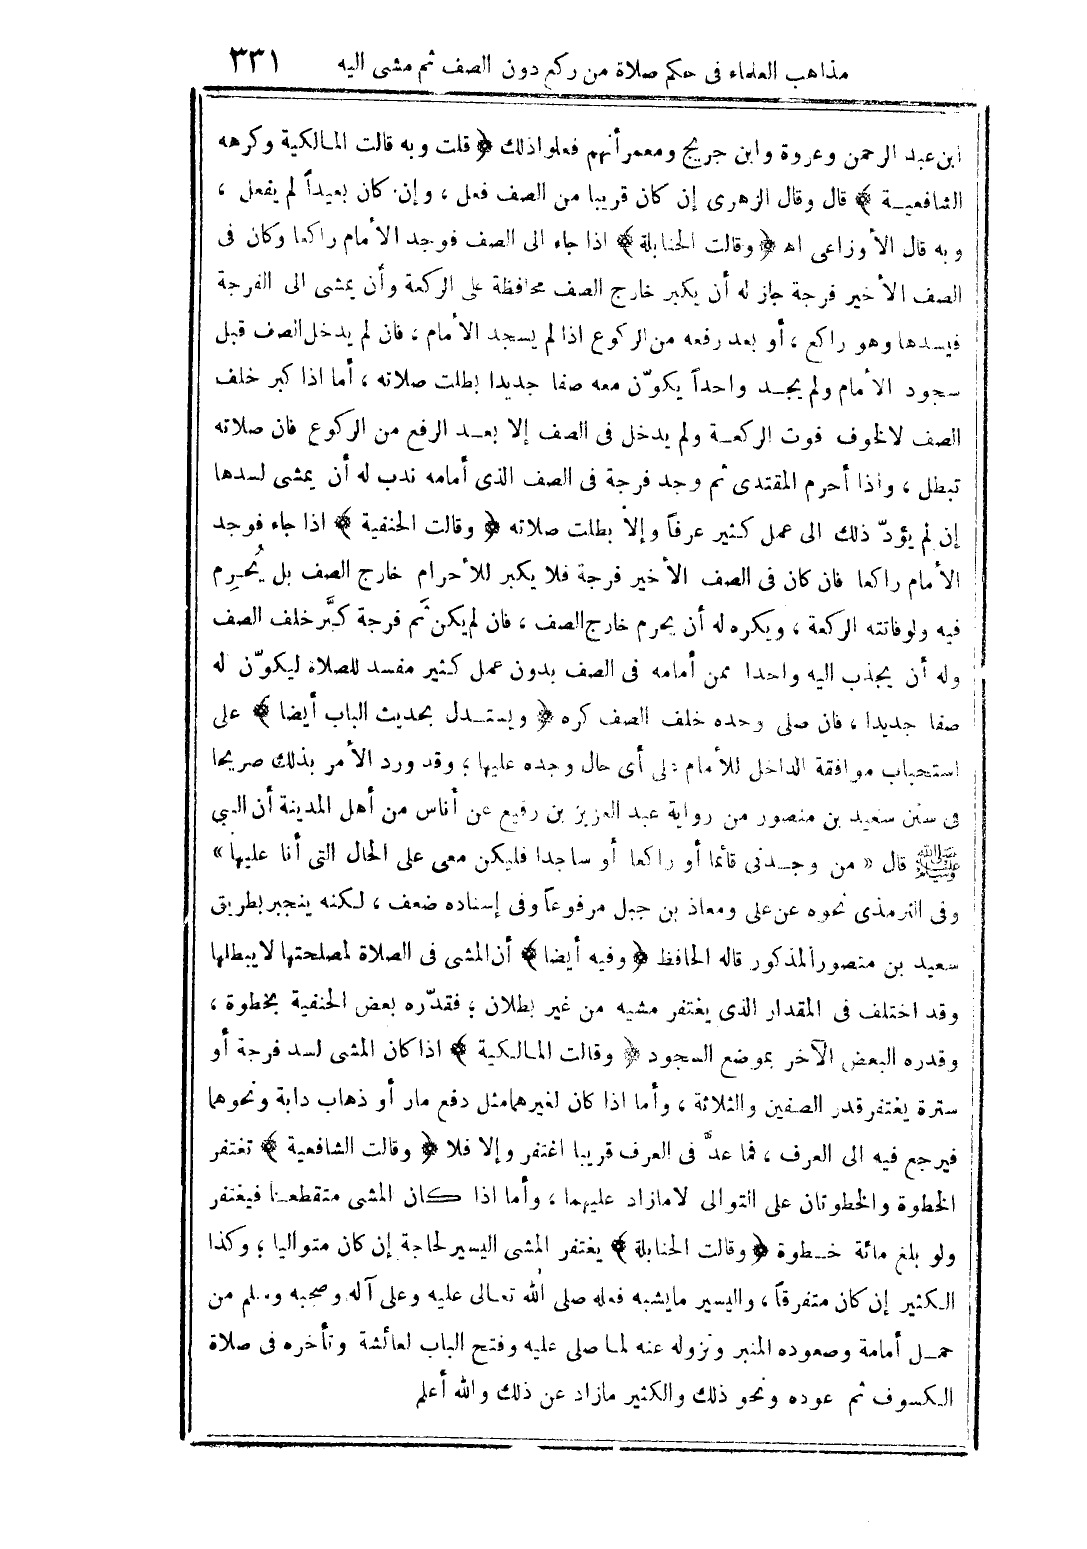 مذاهب العلماء فى حكم صلاة من ركع دون الصف ثم مشى اليه ٣٣١
ابن عبد الرحمن وعروة وابن جريج ومعمر أنهم فعلوا ذلك ﴿ قلت وبه قالت المالكية وكرهه
الشافعية ﴾ قال وقال الزهرى إن كان قريبا من الصف فعل ، وإن كان بعيداً لم يفعل ،
وبه قال الأوزاعى اه ﴿ وقالت الحنابلة ﴾ اذا جاء الى الصف فوجد الأمام راكعا وكان فى
الصف الأخير فرجة جاز له أن يكبر خارج الصف محافظة على الركعة وأن يمشى الى الفرجة
فيسدها وهو راكع ، أو بعد رفعه من الركوع اذا لم يسجد الأمام ، فان لم يدخل الصف قبل
سجود الأمام ولم يجد واحداً يكوّن معه صفا جديدا بطلت صلاته ، أما اذا كبر خلف
الصف لا لخوف فوت الركعة ولم يدخل فى الصف إلا بعد الرفع من الركوع فان صلاته
تبطل ، واذا أحرم المقتدى ثم وجد فرجة فى الصف الذى أمامه ندب له أن يمشى لسدها
إن لم يؤدّ ذلك الى عمل كثير عرفاً وإلا بطلت صلاته ﴿ وقالت الحنفية ﴾ اذا جاء فوجد
الأمام راكعا فان كان فى الصف الأخير فرجة فلا يكبر للأحرام خارج الصف بل يُحرِم
فيه ولو فاتته الركعة ، ويكره له أن يحرم خارج الصف ، فان لم يكن ثَم فرجة كبَّر خلف الصف
وله أن يجذب اليه واحدا ممن أمامه فى الصف بدون عمل كثير مفسد للصلاة ليكوّن له
صفا جديدا ، فان صلى وحده خلف الصف كره ﴿ ويستدل بحديث الباب أيضا ﴾ على
استحباب موافقة الداخل للأمام على أى حال وجده عليها ؛ وقد ورد الأمر بذلك صريحا
فى سنن سعيد بن منصور من رواية عبد العزيز بن رفيع عن أناس من أهل المدينة أن النبي
ﷺ قال « من وجدنى قائما أو راكعا أو ساجدا فليكن معى على الحال التى أنا عليها »
وفى الترمذى نحوه عن على ومعاذ بن جبل مرفوعاً وفى إسناده ضعف ، لكنه ينجبر بطريق
سعيد بن منصور المذكور قاله الحافظ ﴿ وفيه أيضا ﴾ أن المشى فى الصلاة لمصلحتها لا يبطلها
وقد اختلف فى المقدار الذى يغتفر مشيه من غير بطلان ؛ فقدّره بعض الحنفية بخطوة ،
وقدره البعض الآخر بموضع السجود ﴿ وقالت المالكية ﴾ اذا كان المشى لسد فرجة أو
سترة يغتفر قدر الصفين والثلاثة ، وأما اذا كان لغيرهما مثل دفع مار أو ذهاب دابة ونحوهما
فيرجع فيه الى العرف ، فما عدَّ فى العرف قريبا اغتفر وإلا فلا ﴿ وقالت الشافعية ﴾ تغتفر
الخطوة والخطوتان على التوالى لا مازاد عليهما ، وأما اذا كان المشى متقطعا فيغتفر
ولو بلغ مائة خطوة ﴿ وقالت الحنابلة ﴾ يغتفر المشى اليسير لحاجة إن كان متواليا ؛ وكذا
الكثير إن كان متفرقاً ، واليسير مايشبه فعله صلى الله تعالى عليه وعلى آله وصحبه وسلم من
حمل أمامة وصعوده المنبر ونزوله عنه لما صلى عليه وفتح الباب لعائشة وتأخره فى صلاة
الكسوف ثم عوده ونحو ذلك والكثير مازاد عن ذلك والله أعلم